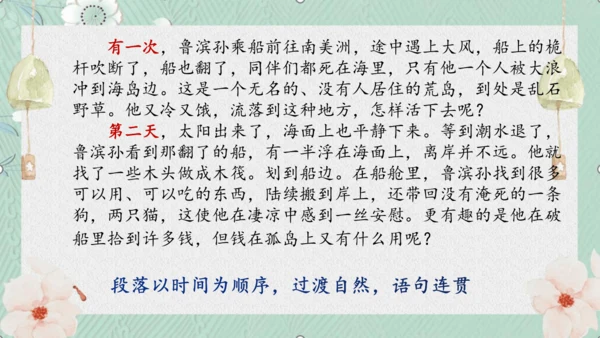 有一次，鲁滨孙乘船前往南美洲，途中遇上大风，船上的桅
杆吹断了，船也翻了，同伴们都死在海里，只有他一个人被大浪
冲到海岛边。这是一个无名的、没有人居住的荒岛，到处是乱石
野草。他又冷又饿，流落到这种地方，怎样活下去呢？
第二天，太阳出来了，海面上也平静下来。等到潮水退了，
鲁滨孙看到那翻了的船，有一半浮在海面上，离岸并不远。他就
找了一些木头做成木筏。划到船边。在船舱里，鲁滨孙找到很多
可以用、可以吃的东西，陆续搬到岸上，还带回没有淹死的一条
狗，两只猫，这使他在凄凉中感到一丝安慰。更有趣的是他在破
船里拾到许多钱，但钱在孤岛上又有什么用呢？
段落以时间为顺序，过渡自然，语句连贯